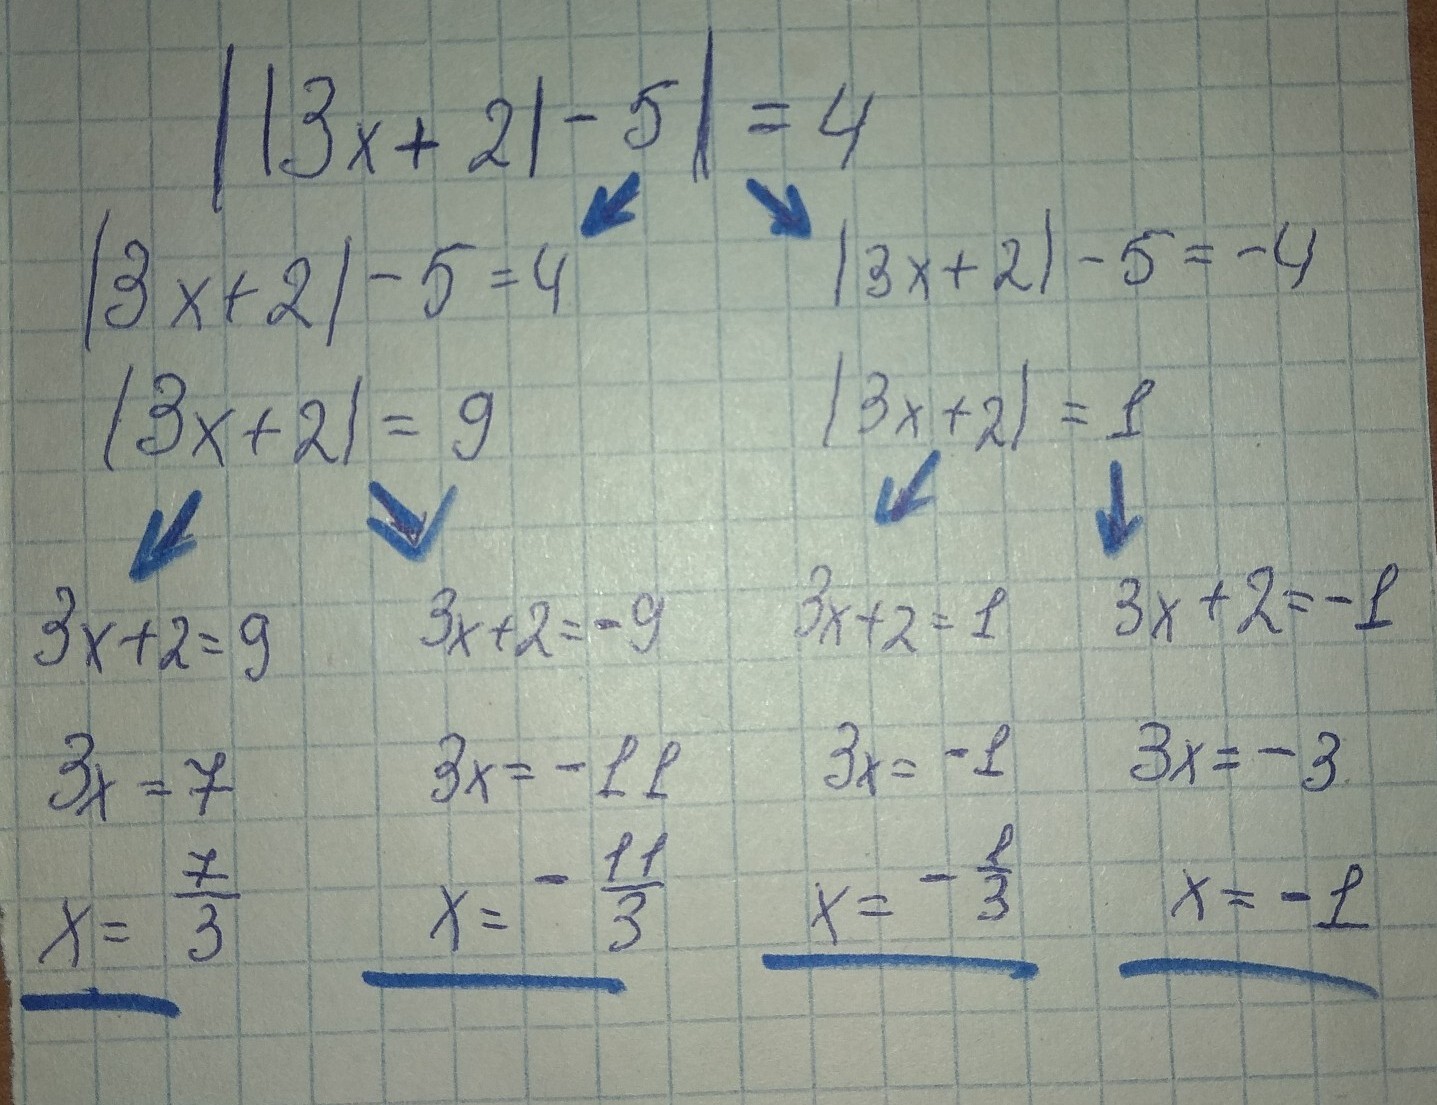 ||3x+2|-5| = 4
|3x+2|-5=4 |3x+2|-5=-4
|3x+2| = 9 |3x+2| = 1
3x+2=9 3x+2=-9 3x+2=1 3x+2=-1
3x=7 3x=-11 3x=-1 3x=-3
x= 7/3 x= -11/3 x= -1/3 x=-1